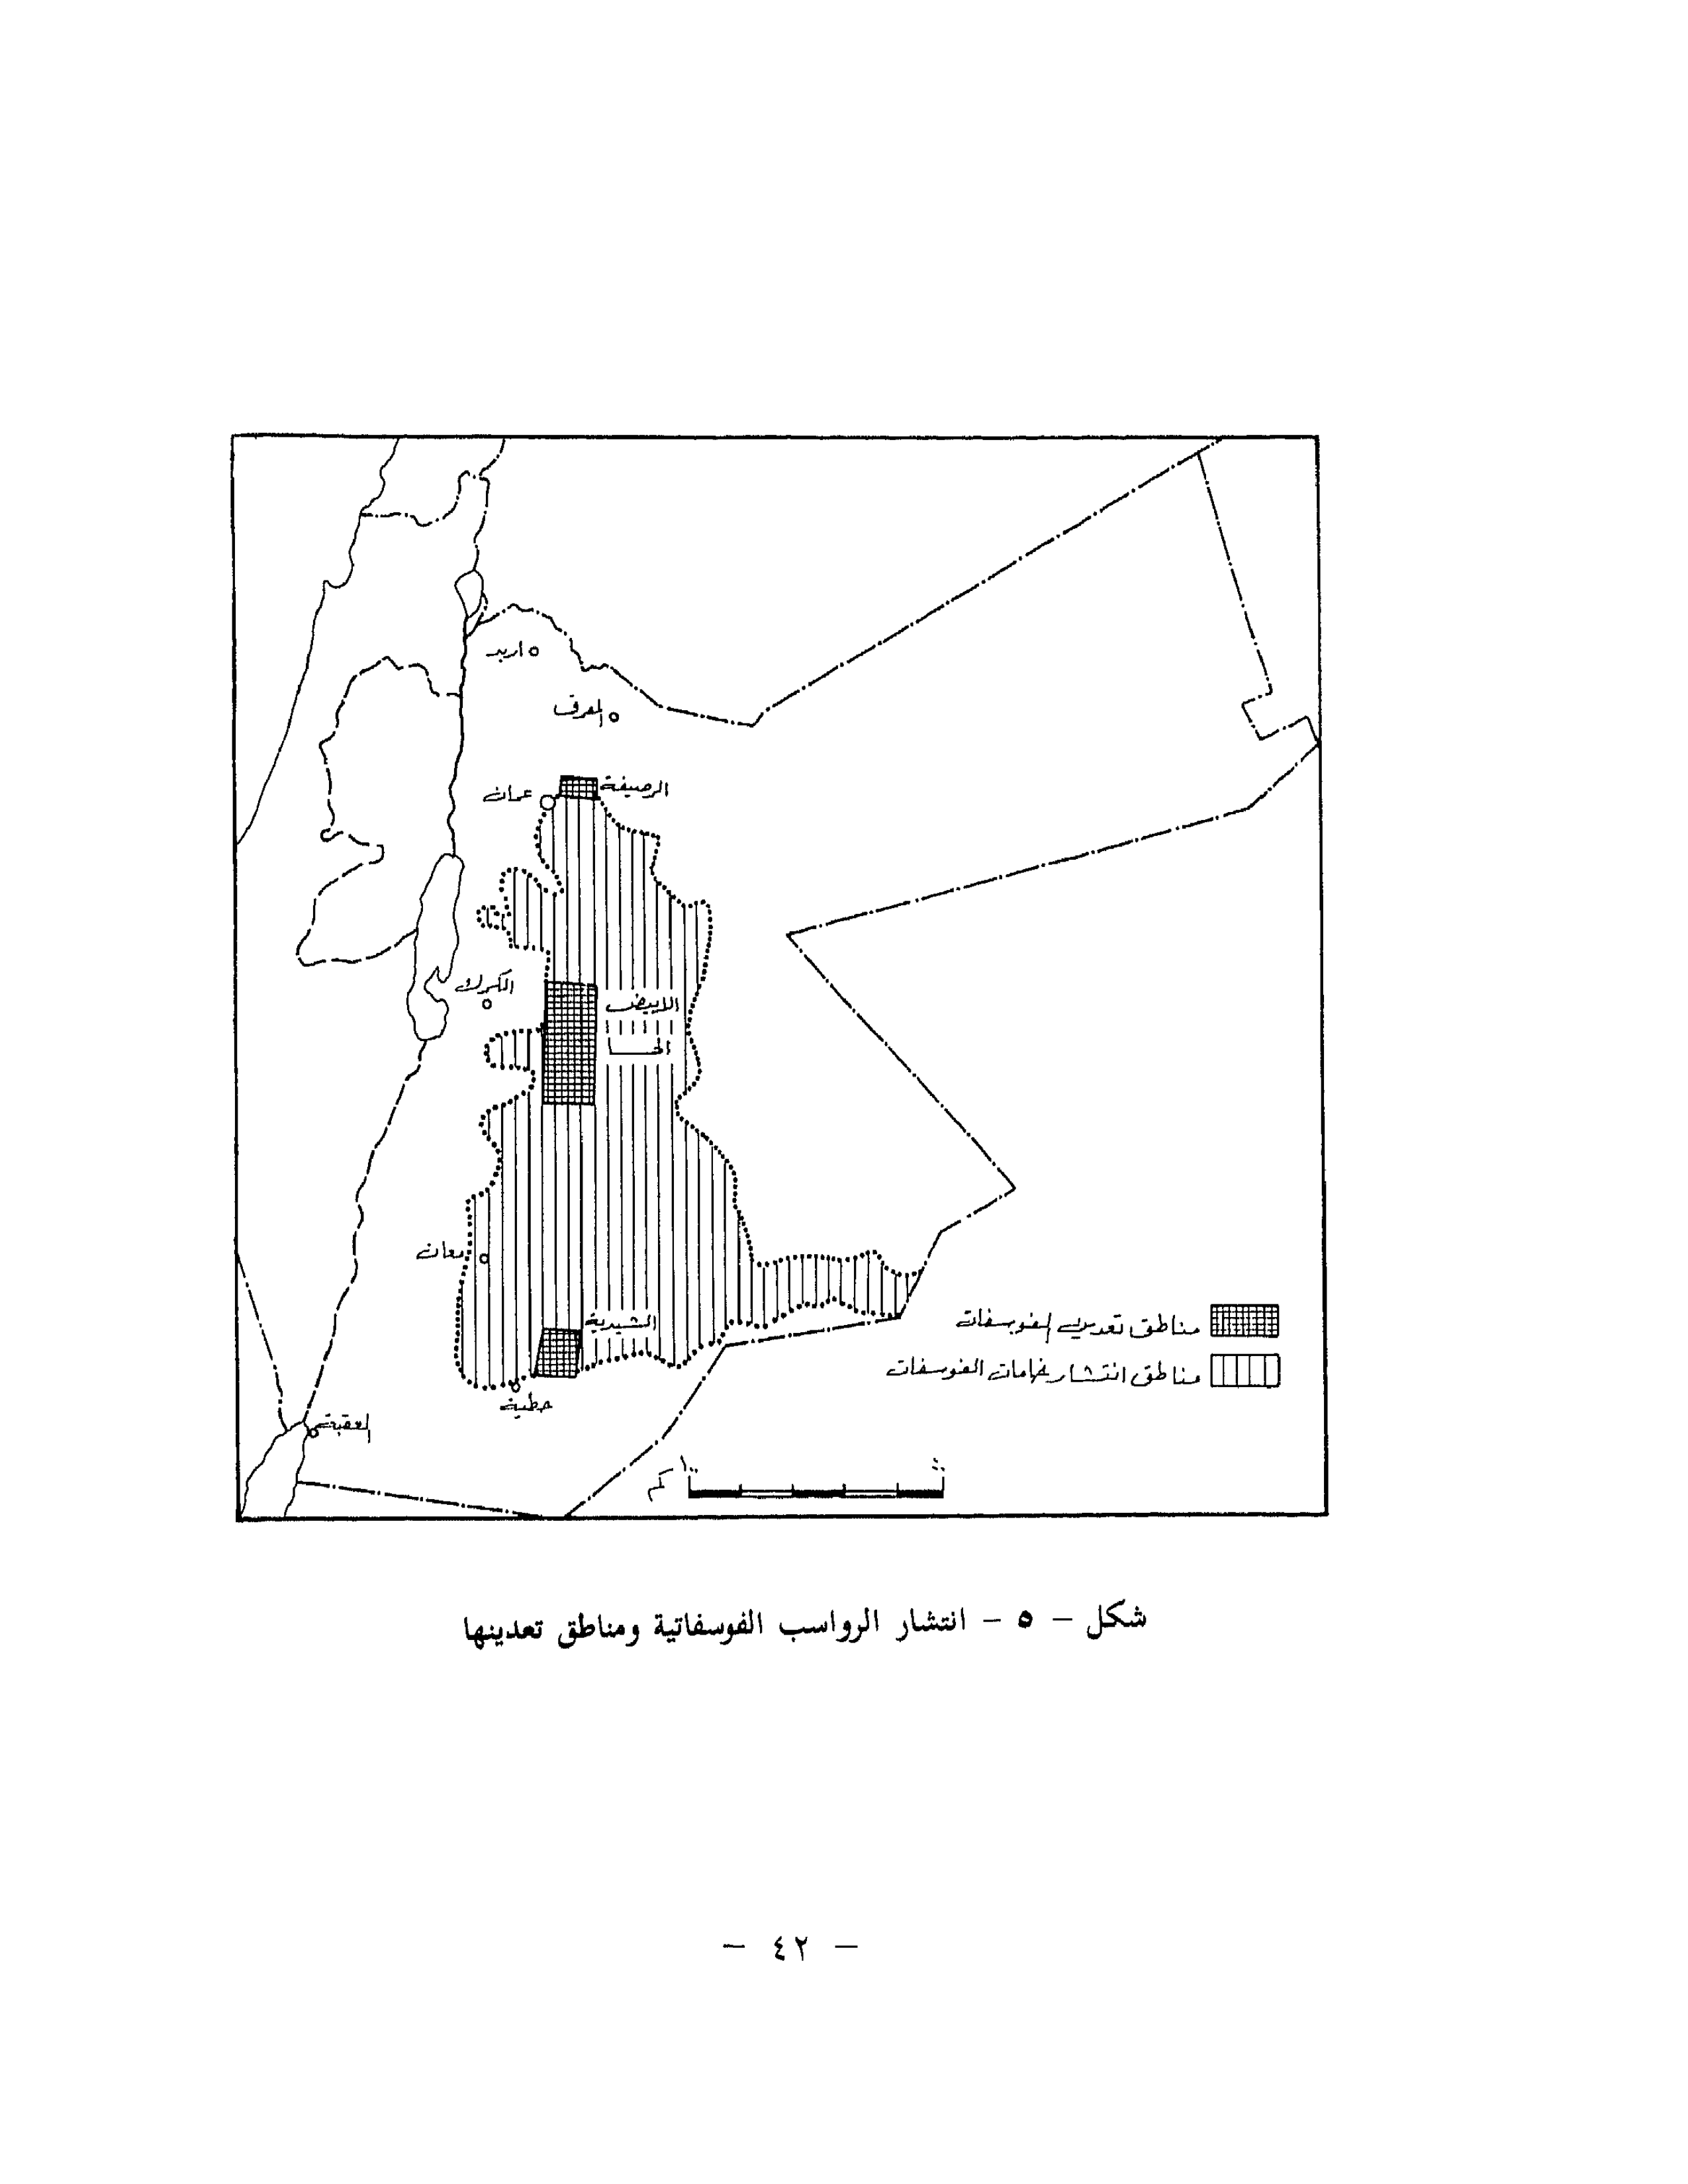 اربد
المفرق
الرصيفة
عمان
الكرك
الابيض
الحسا
معان
الشيدية
مناطق تعدين الفوسفات
مناطق انتشار خامات الفوسفات
حطية
العقبة
كم
شكل – ٥ – انتشار الرواسب الفوسفاتية ومناطق تعدينها
– ٤٢ –